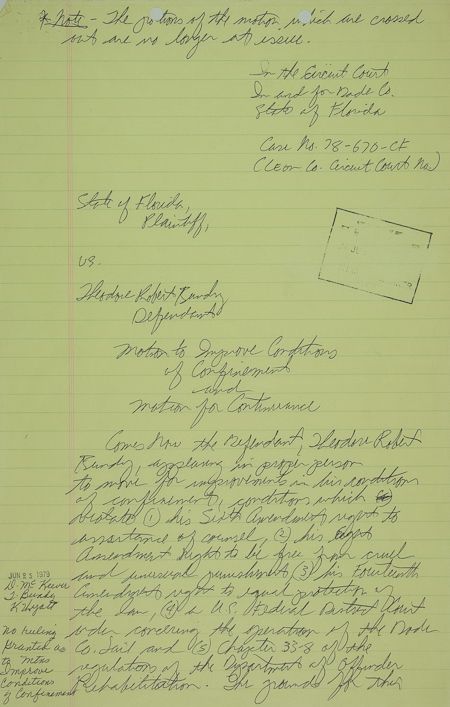 * Note - The portions of the motion which are crossed
out are no longer at issue.
In the Circuit Court
In and for Dade Co.
State of Florida
Case No. 78-670-CF
(Leon Co. Circuit Court No.)
State of Florida,
Plaintiff,
vs.
Theodore Robert Bundy
Defendant
Motion to Improve Conditions
of Confinement
and
Motion for Continuance
Comes Now the Defendant, Theodore Robert
Bundy, appearing in proper person
to move for improvements in his conditions
of confinement, conditions which
violate (1) his Sixth Amendment right to
assistance of counsel, (2) his
Amendment Right to be free from cruel
and unusual punishment (3) his Fourteenth
Amendment right to equal protection of
the law, (4) a U.S. Federal District Court
order concerning the operation of the Dade
Co. Jail and (5) Chapter 33-8 of the
regulations of the Department of Offender
Rehabilitation. The grounds for this
JUN 25 1979
D. McKeever
T. Bundy
K
no ruling
Granted as
to
Improve
Conditions
of Confinement